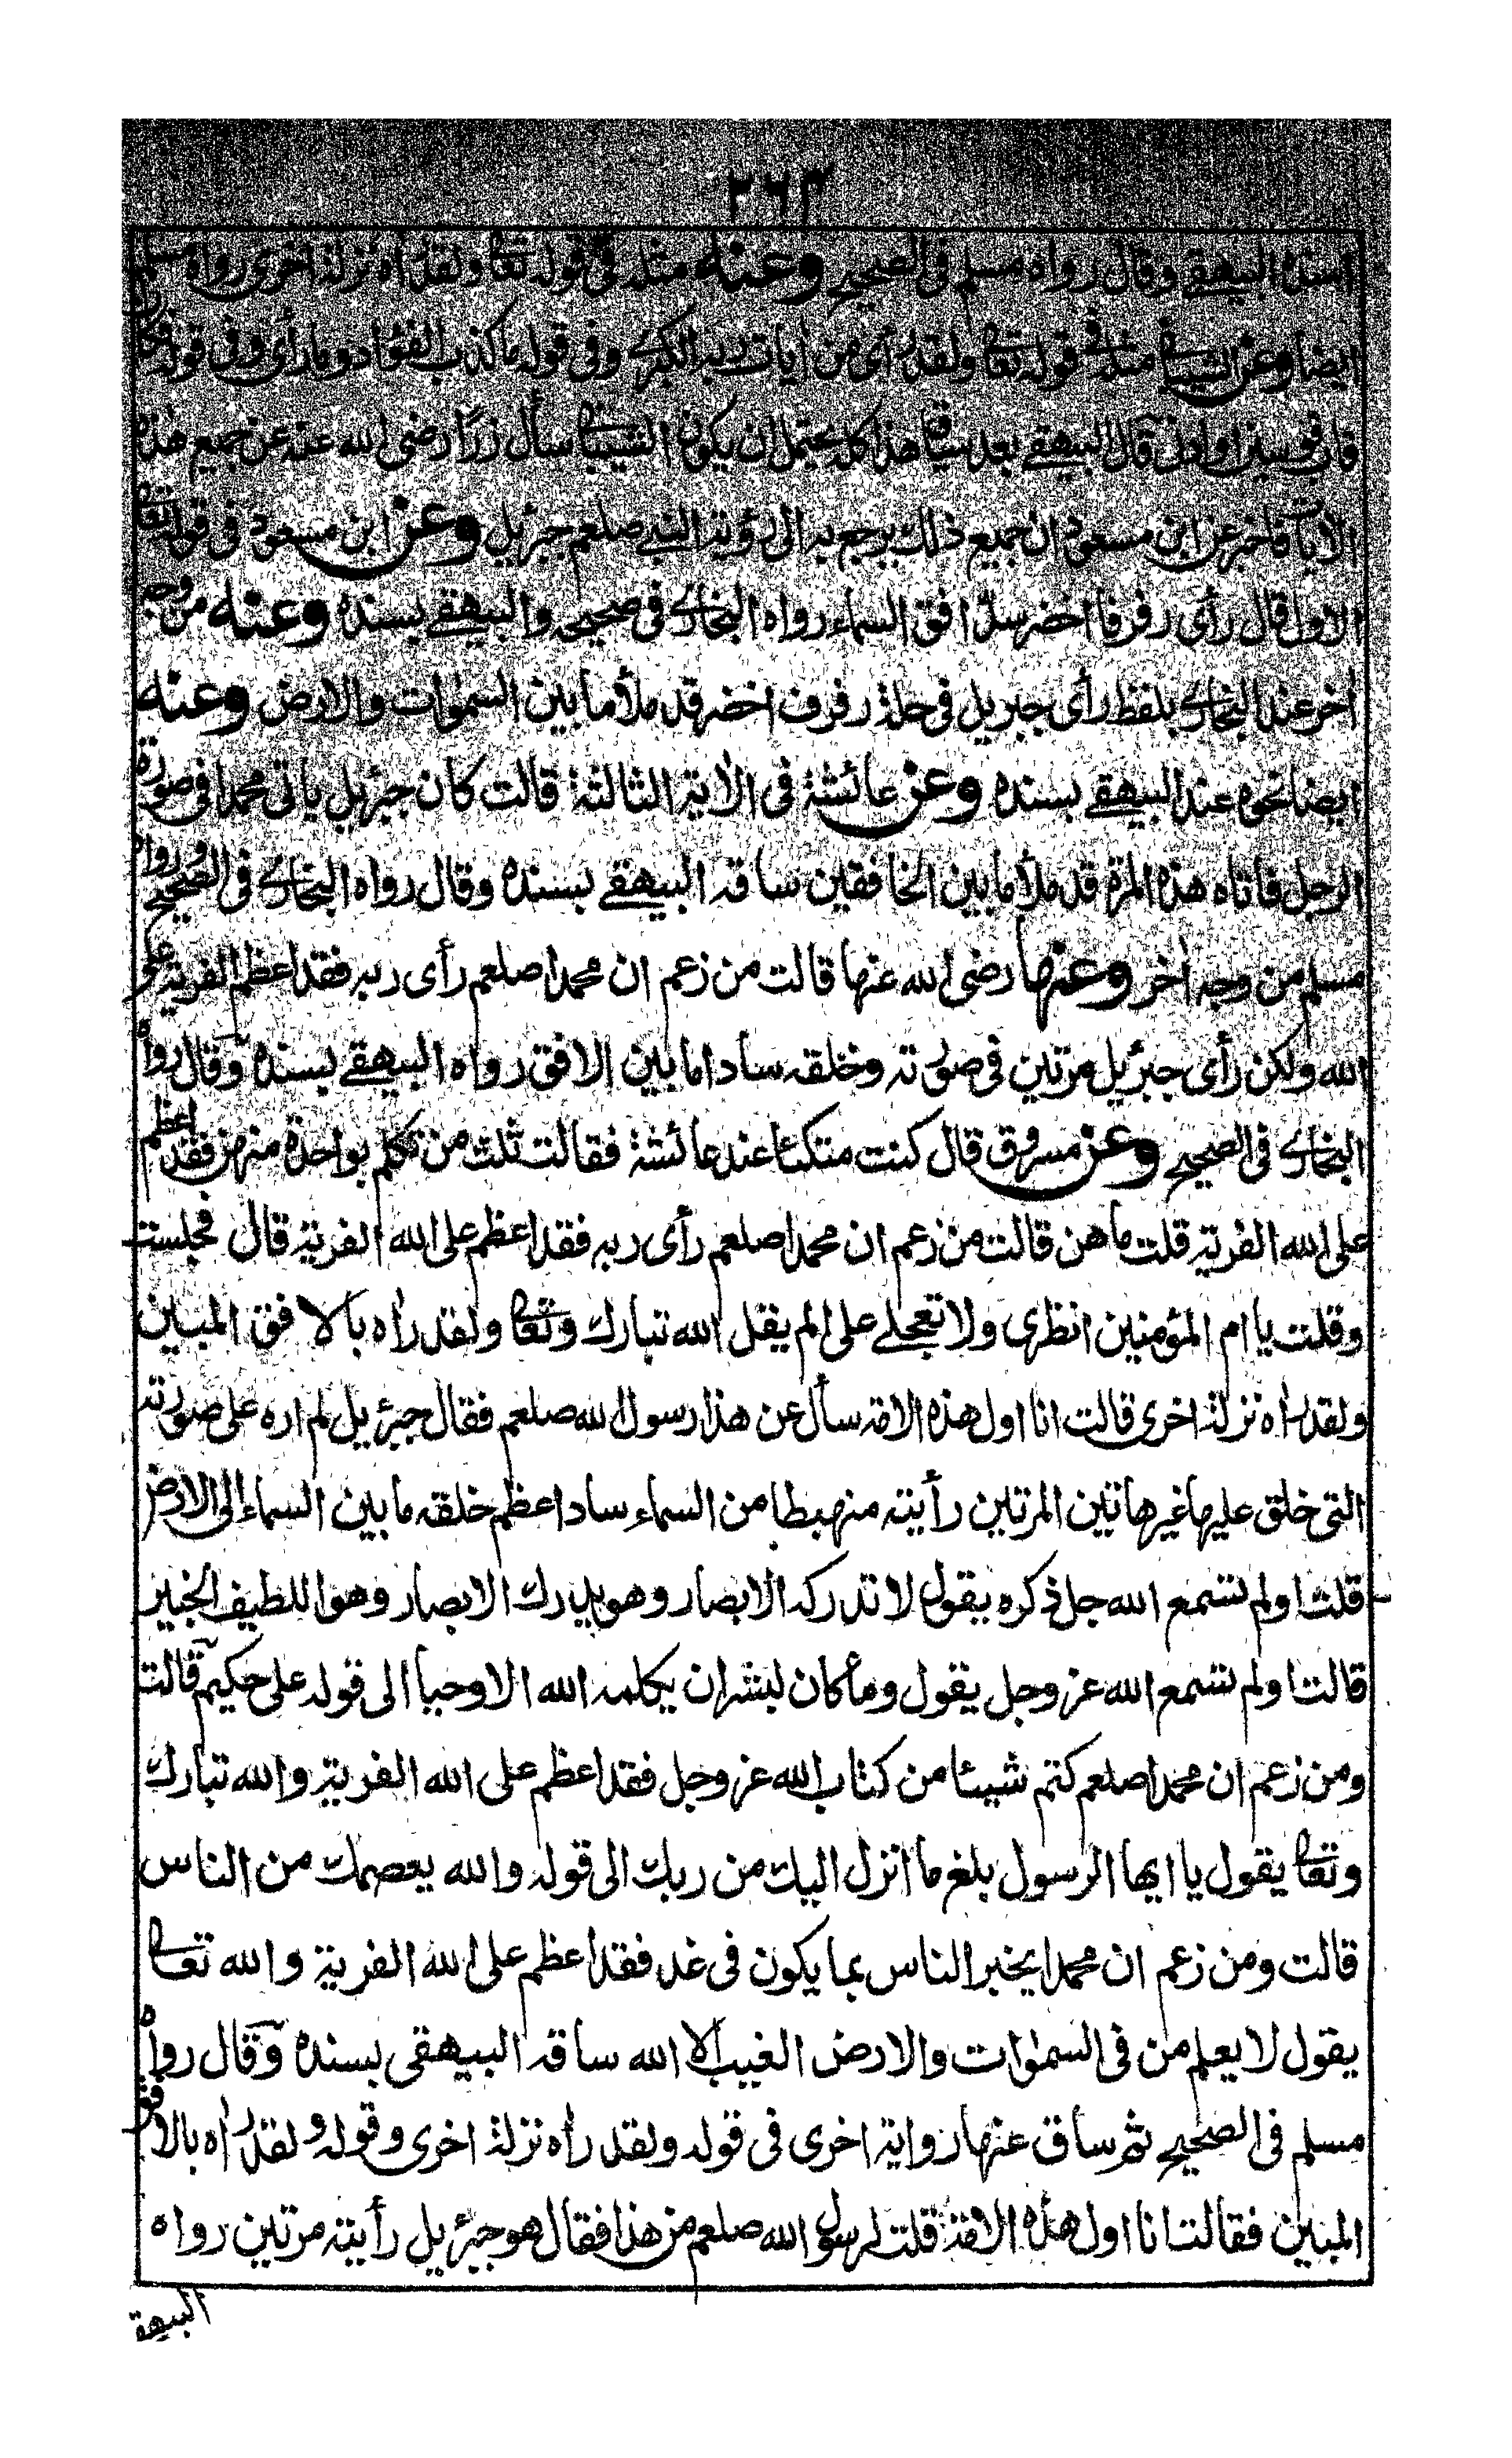 ٢٦٣
اسنده البيهقي وقال رواه مسلم في الصحيح وعنه مثله في قوله تعالى ولقد رآه نزلة اخرى رواه مسلم
ايضا وعن الشيباني مثله في قوله تعالى ولقد رأى من ايات ربه الكبرى وفي قوله ما كذب الفؤاد ما رأى وفي قوله فكان
قاب قوسين او ادنى قال البيهقي بعد سياق هذا كله يحتمل ان يكون الشيباني سأل زرا رضي الله عنه عن جميع هذه
الآيات فاخبر عن ابن مسعود ان جميع ذلك يرجع به الى رؤية النبي صلعم جبرئيل وعن ابن مسعود في قوله تعالى
الاول قال رأى رفرفا اخضر سد افق السماء رواه البخاري في صحيحه والبيهقي بسنده وعنه من وجه
آخر عند البخاري بلفظ رأى جبريل في حلة رفرف اخضر قد ملأ ما بين السموات والارض وعنه
ايضا نحوه عند البيهقي بسنده وعن عائشة في الآية الثالثة قالت كان جبرئيل يأتي محمدا في صورة
الرجل فاتاه هذه المرة قد ملأ ما بين الخافقين ساقه البيهقي بسنده وقال رواه البخاري في الصحيح ورواه
مسلم من وجه آخر وعنها رضي الله عنها قالت من زعم ان محمدا صلعم رأى ربه فقد اعظم الفرية على
الله ولكن رأى جبرئيل مرتين في صورته وخلقه سادا ما بين الافق رواه البيهقي بسنده وقال رواه
البخاري في الصحيح وعن مسروق قال كنت متكئا عند عائشة فقالت ثلث من تكلم بواحدة منهن فقد اعظم
على الله الفرية قلت ما هن قالت من زعم ان محمدا صلعم رأى ربه فقد اعظم على الله الفرية قال فجلست
وقلت يا ام المؤمنين انظرى ولا تعجلي على الم يقل الله تبارك وتعالى ولقد رآه بالافق المبين
ولقد رآه نزلة اخرى قالت انا اول هذه الامة سأل عن هذا رسول الله صلعم فقال جبرئيل لم اره على صورته
التي خلق عليها غير هاتين المرتين رأيته منهبطا من السماء سادا عظم خلقه ما بين السماء الى الارض
قلت اولم تسمع الله جل ذكره يقول لا تدركه الابصار وهو يدرك الابصار وهو اللطيف الخبير
قالت اولم تسمع الله عز وجل يقول وما كان لبشر ان يكلمه الله الا وحيا الى قوله على حكيم قالت
ومن زعم ان محمدا صلعم كتم شيئا من كتاب الله عز وجل فقد اعظم على الله الفرية والله تبارك
وتعالى يقول يا ايها الرسول بلغ ما انزل اليك من ربك الى قوله والله يعصمك من الناس
قالت ومن زعم ان محمدا يخبر الناس بما يكون في غد فقد اعظم على الله الفرية والله تعالى
يقول لا يعلم من في السموات والارض الغيب الا الله ساقه البيهقي بسنده وقال رواه
مسلم في الصحيح ثم ساق عنها رواية اخرى في قوله ولقد رآه نزلة اخرى وقوله ولقد رآه بالافق
المبين فقالت انا اول هذه الامة قلت لرسول الله صلعم من هذا فقال هو جبرئيل رأيته مرتين رواه
البيهقي